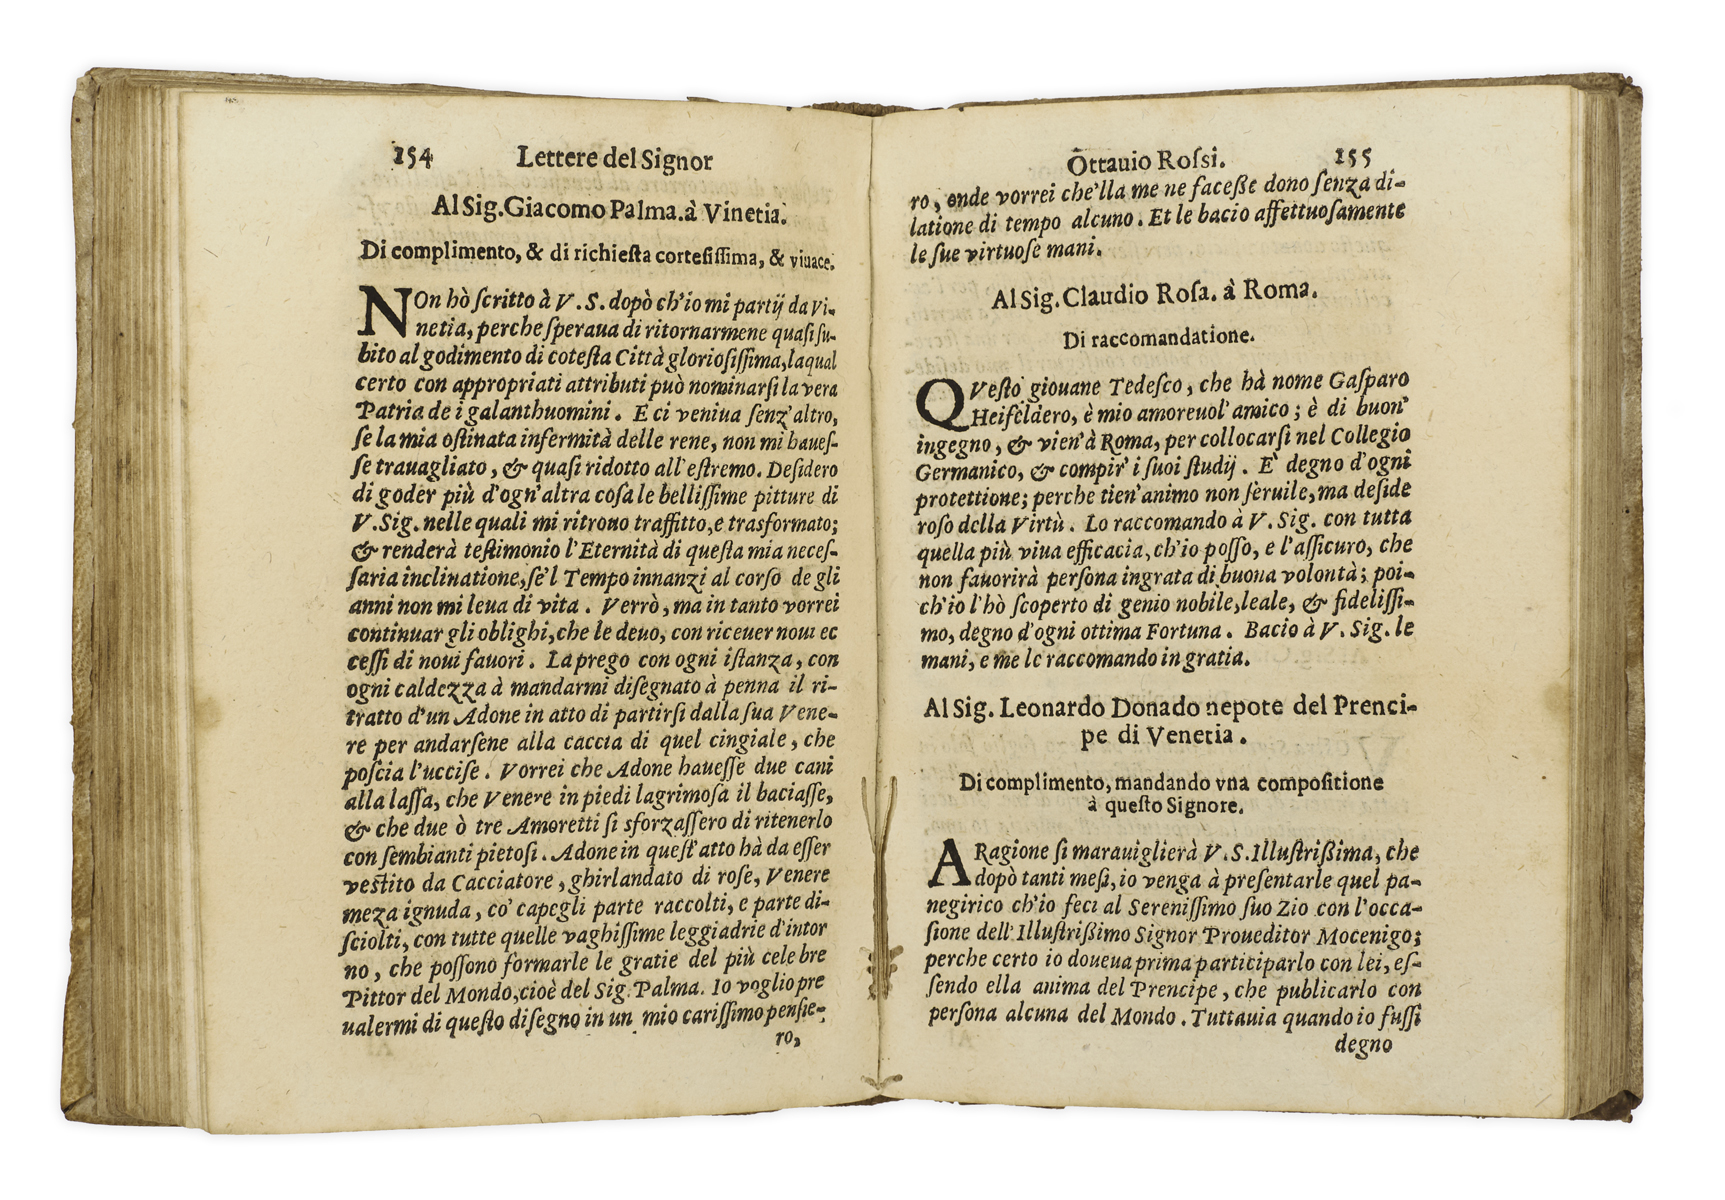 154 Lettere del Signor
Al Sig. Giacomo Palma. à Vinetia.
Di complimento, & di richiesta cortesissima, & viuace.
NOn hò scritto à V. S. dopò ch'io mi partij da Vi-
netia, perche speraua di ritornarmene quasi su-
bito al godimento di cotesta Città gloriosissima, la qual
certo con appropriati attributi può nominarsi la vera
Patria de i galanthuomini. E ci veniua senz'altro,
se la mia ostinata infermità delle rene, non mi haues-
se trauagliato, & quasi ridotto all'estremo. Desidero
di goder più d'ogn'altra cosa le bellissime pitture di
V. Sig. nelle quali mi ritrouo traffitto, e trasformato;
& renderà testimonio l'Eternità di questa mia neces-
saria inclinatione, se'l Tempo innanzi al corso de gli
anni non mi leua di vita. Verrò, ma in tanto vorrei
continuar gli oblighi, che le deuo, con riceuer noui ec
cessi di noui fauori. La prego con ogni istanza, con
ogni caldezza à mandarmi disegnato à penna il ri-
tratto d'un Adone in atto di partirsi dalla sua Vene-
re per andarsene alla caccia di quel cingiale, che
poscia l'uccise. Vorrei che Adone hauesse due cani
alla lassa, che Venere in piedi lagrimosa il baciasse,
& che due ò tre Amoretti si sforzassero di ritenerlo
con sembianti pietosi. Adone in quest'atto hà da esser
vestito da Cacciatore, ghirlandato di rose, Venere
meza ignuda, co' capegli parte raccolti, e parte di-
sciolti, con tutte quelle vaghissime leggiadrie d'intor
no, che possono formarle le gratie del più celebre
Pittor del Mondo, cioè del Sig. Palma. Io voglio pre
ualermi di questo disegno in un mio carissimo pensie-
ro,
Ottauio Rossi. 155
ro, onde vorrei che'lla me ne facesse dono senza di-
latione di tempo alcuno. Et le bacio affettuosamente
le sue virtuose mani.
Al Sig. Claudio Rosa. à Roma.
Di raccomandatione.
QVesto giouane Tedesco, che hà nome Gasparo
Heifeldero, è mio amoreuol' amico; è di buon'
ingegno, & vien'à Roma, per collocarsi nel Collegio
Germanico, & compir' i suoi studij. E' degno d'ogni
protettione; perche tien'animo non seruile, ma deside
roso della Virtù. Lo raccomando à V. Sig. con tutta
quella più viua efficacia, ch'io posso, e l'assicuro, che
non fauorirà persona ingrata di buona volontà; poi-
ch'io l'hò scoperto di genio nobile, leale, & fidelissi-
mo, degno d'ogni ottima Fortuna. Bacio à V. Sig. le
mani, e me le raccomando in gratia.
Al Sig. Leonardo Donado nepote del Prenci-
pe di Venetia.
Di complimento, mandando vna compositione
à questo Signore.
A Ragione si marauiglierà V. S. Illustrißima, che
dopò tanti mesi, io venga à presentarle quel pa-
negirico ch'io feci al Serenissimo suo Zio con l'occa-
sione dell'Illustrißimo Signor Proueditor Mocenigo;
perche certo io doueua prima participarlo con lei, es-
sendo ella anima del Prencipe, che publicarlo con
persona alcuna del Mondo. Tuttauia quando io fussi
degno